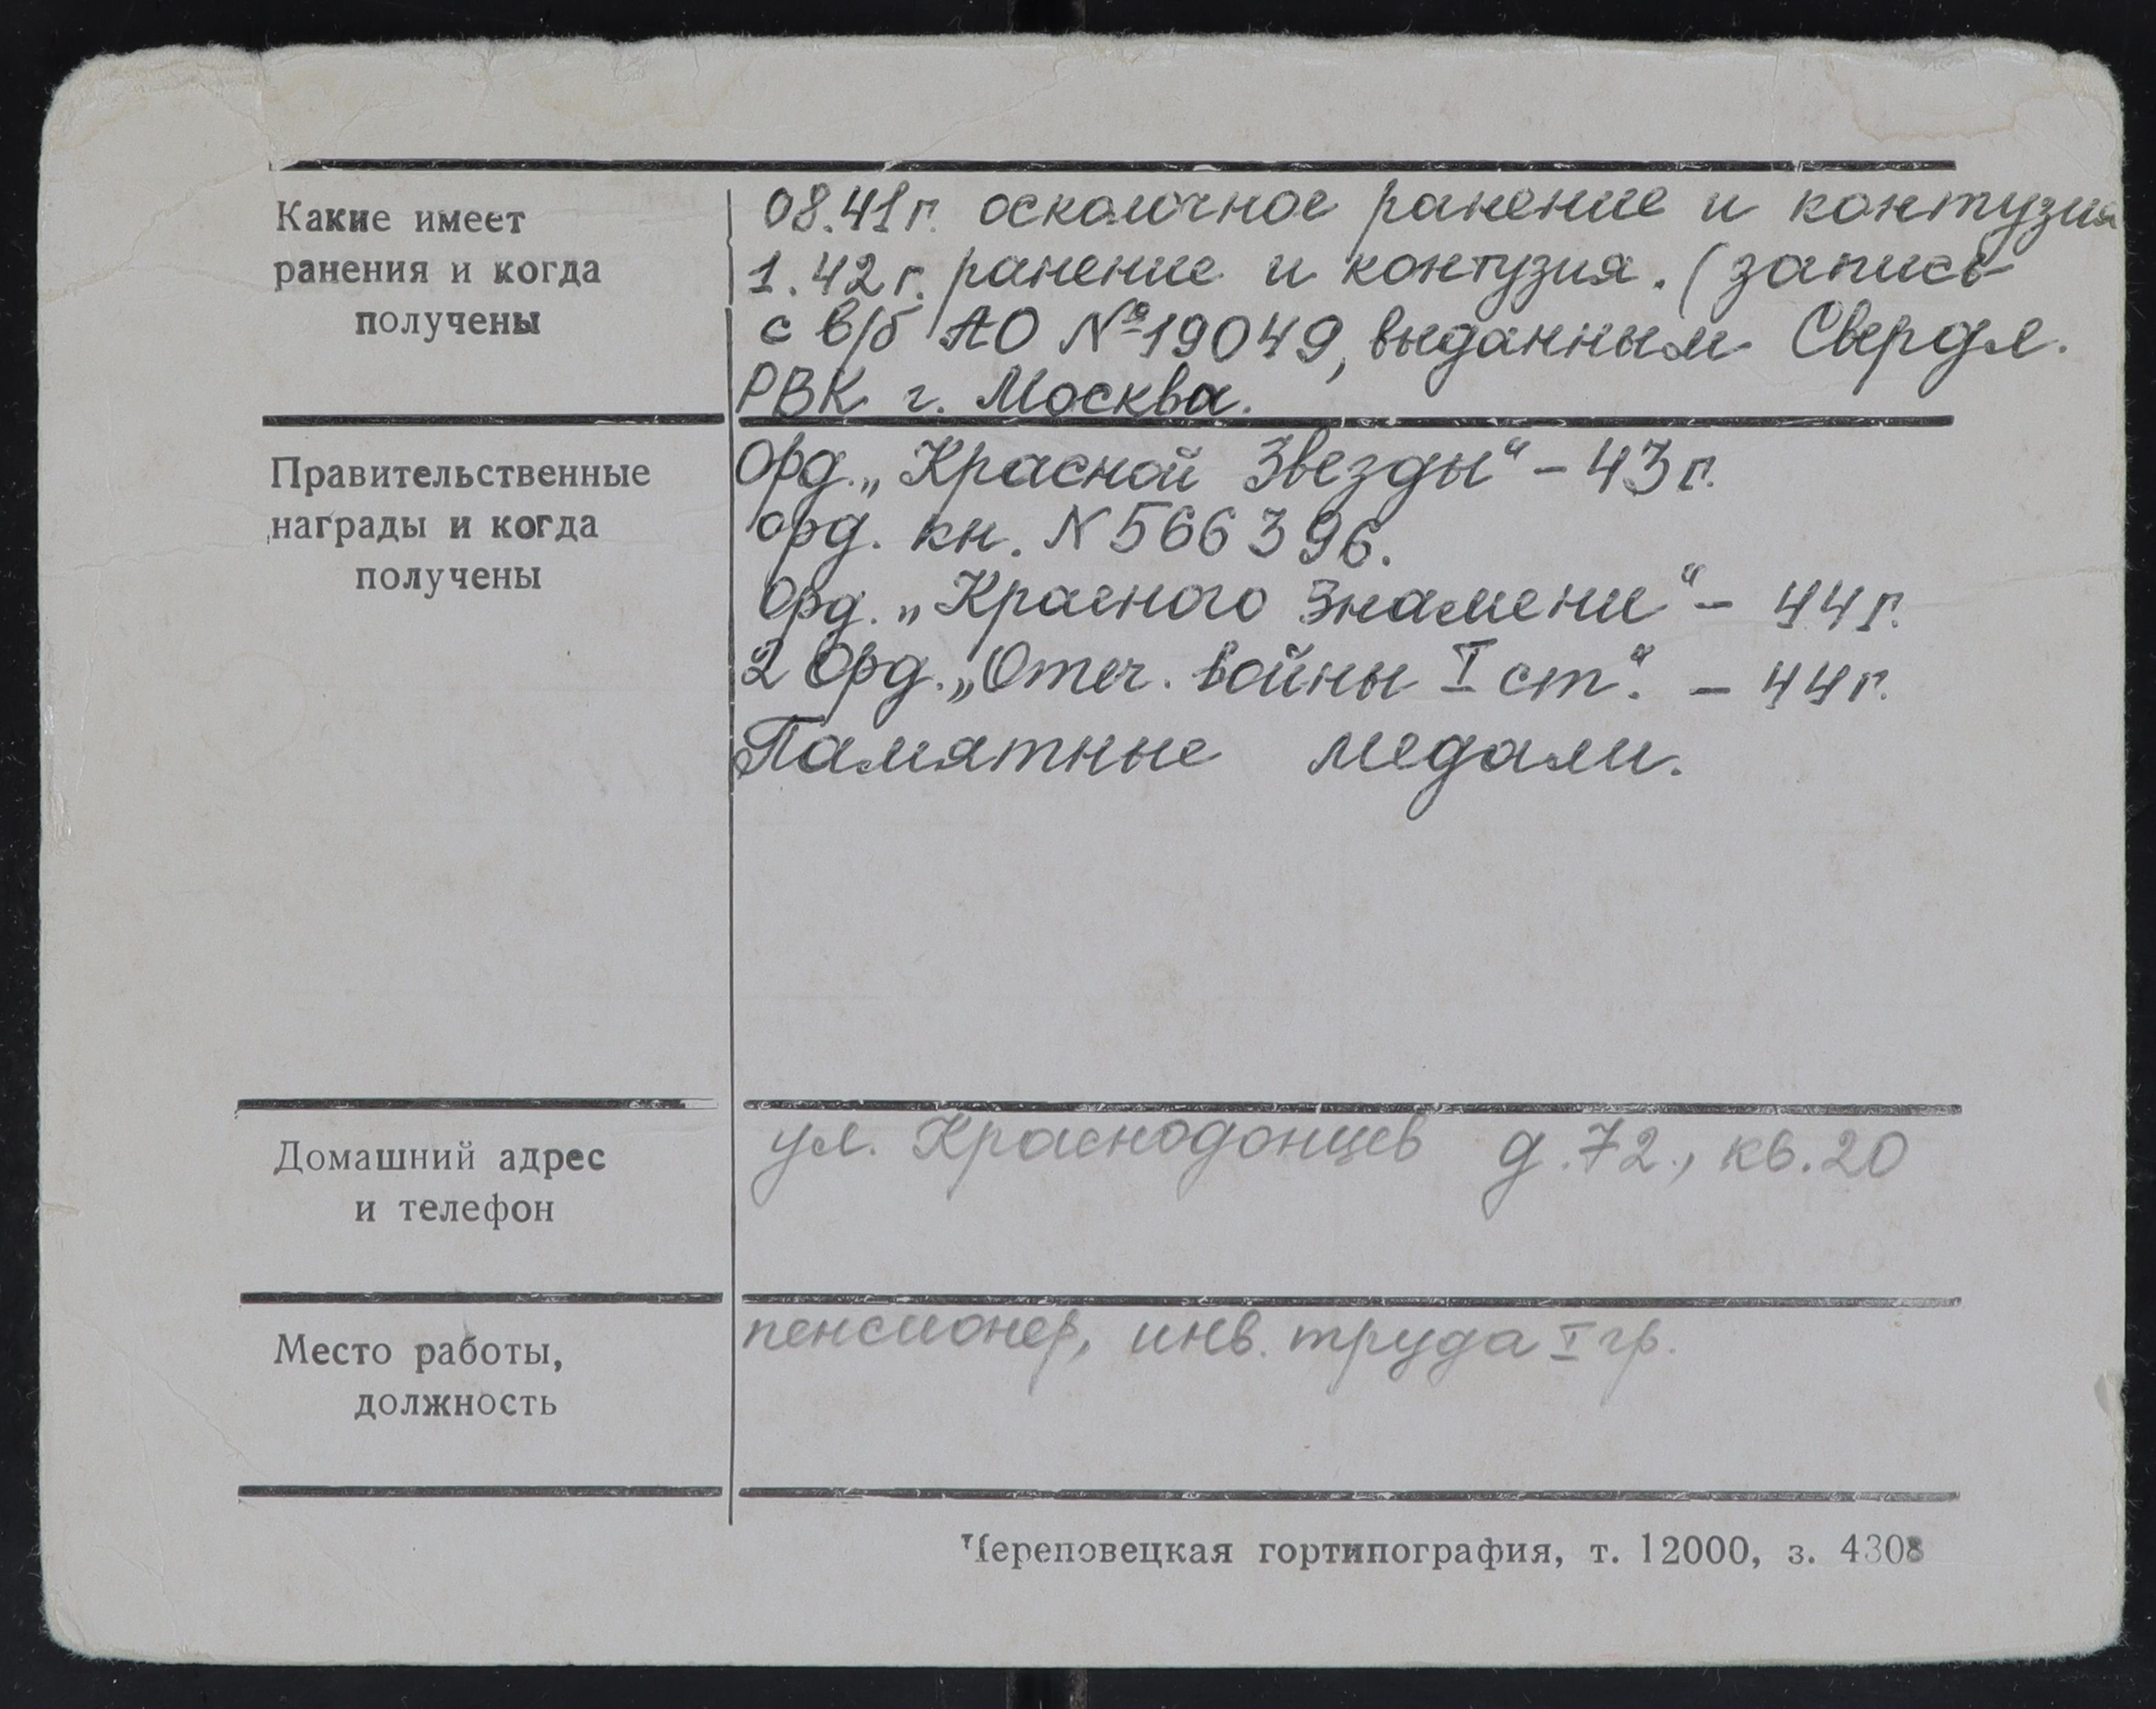 Какие имеет
ранения и когда
получены
08.41г. осколочное ранение и контузия
1.42г. ранение и контузия. (запись
с в/б АО №19049, выданным Свердл.
РВК г. Москва.
Правительственные
награды и когда
получены
Орд. „Красной Звезды“ – 43г.
орд. кн. N 566396.
Орд. „Красного Знамени“ – 44г.
2 Орд. „Отеч. войны I ст“. – 44г.
Памятные медали.
Домашний адрес
и телефон
ул. Краснодонцев д.72., кв.20
Место работы,
должность
пенсионер, инв. труда I гр.
Череповецкая гортипография, т. 12000, з. 4308